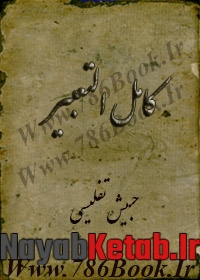 Www.786Book.Ir
کامل التعبیر
Www.786Book.Ir
حبیش تفلیسی
NayabKetab.Ir
Www.786Book.Ir